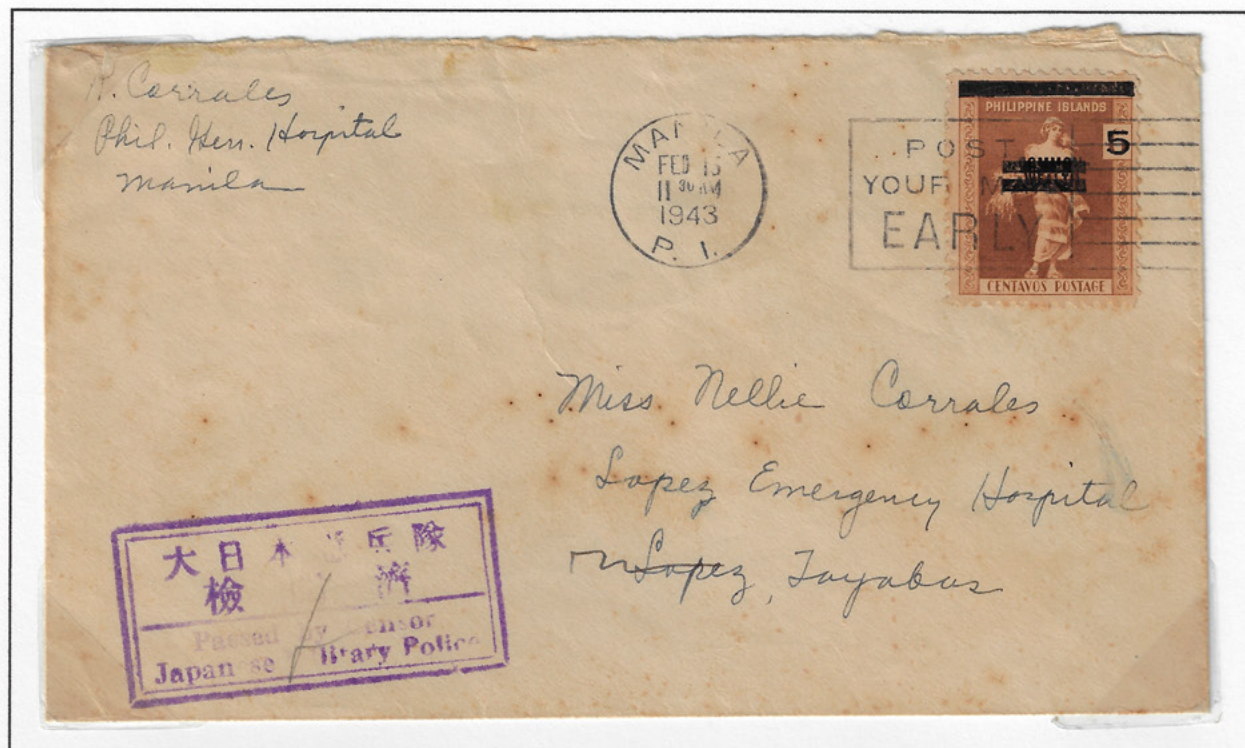 N. Corrales
Phil. Gen. Hospital
Manila
MANILA
FEB 15
11 30 AM
1943
P. I.
POST
YOUR MAIL
EARLY
PHILIPPINE ISLANDS
5
CENTAVOS POSTAGE
Miss Nellie Corrales
Lopez Emergency Hospital
Lopez, Tayabas
大日本憲兵隊
檢閲濟
Passed by Censor
Japanese Military Police